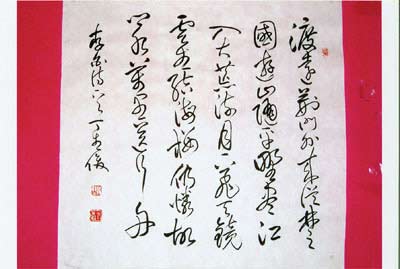 渡遠荊門外來從楚
國遊山隨平野盡江
入大荒流月下飛天鏡
雲生結海樓仍憐故
鄉水萬里送行舟
李白詩